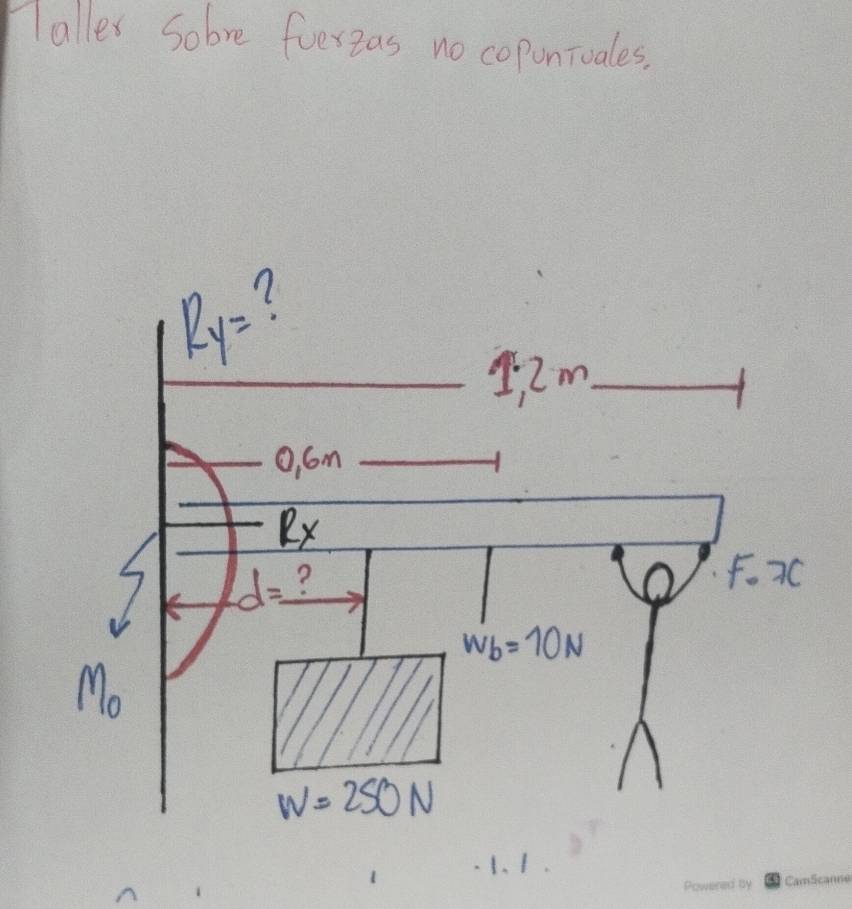 Taller Sobre fuerzas no copuntuales.
Ry=?
1,2m
0,6m
Rx
d=?
F. x
Wb=10N
Mo
W=250N
Powered by CS CamScanne